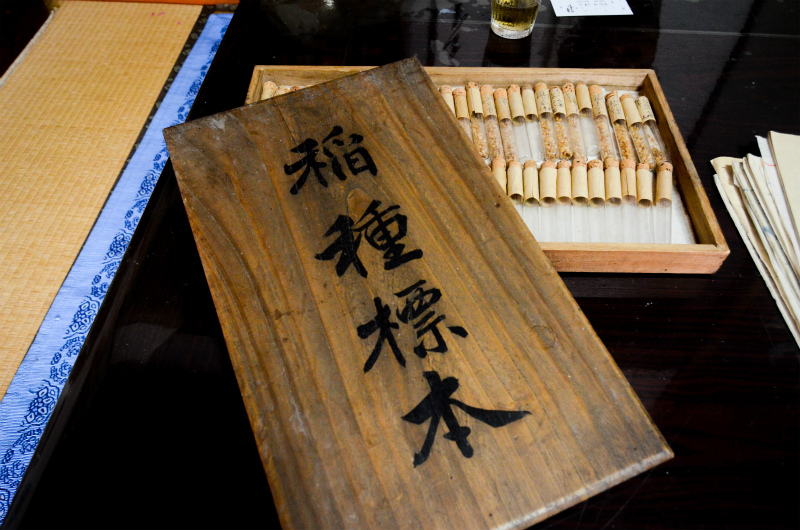 稲種標本